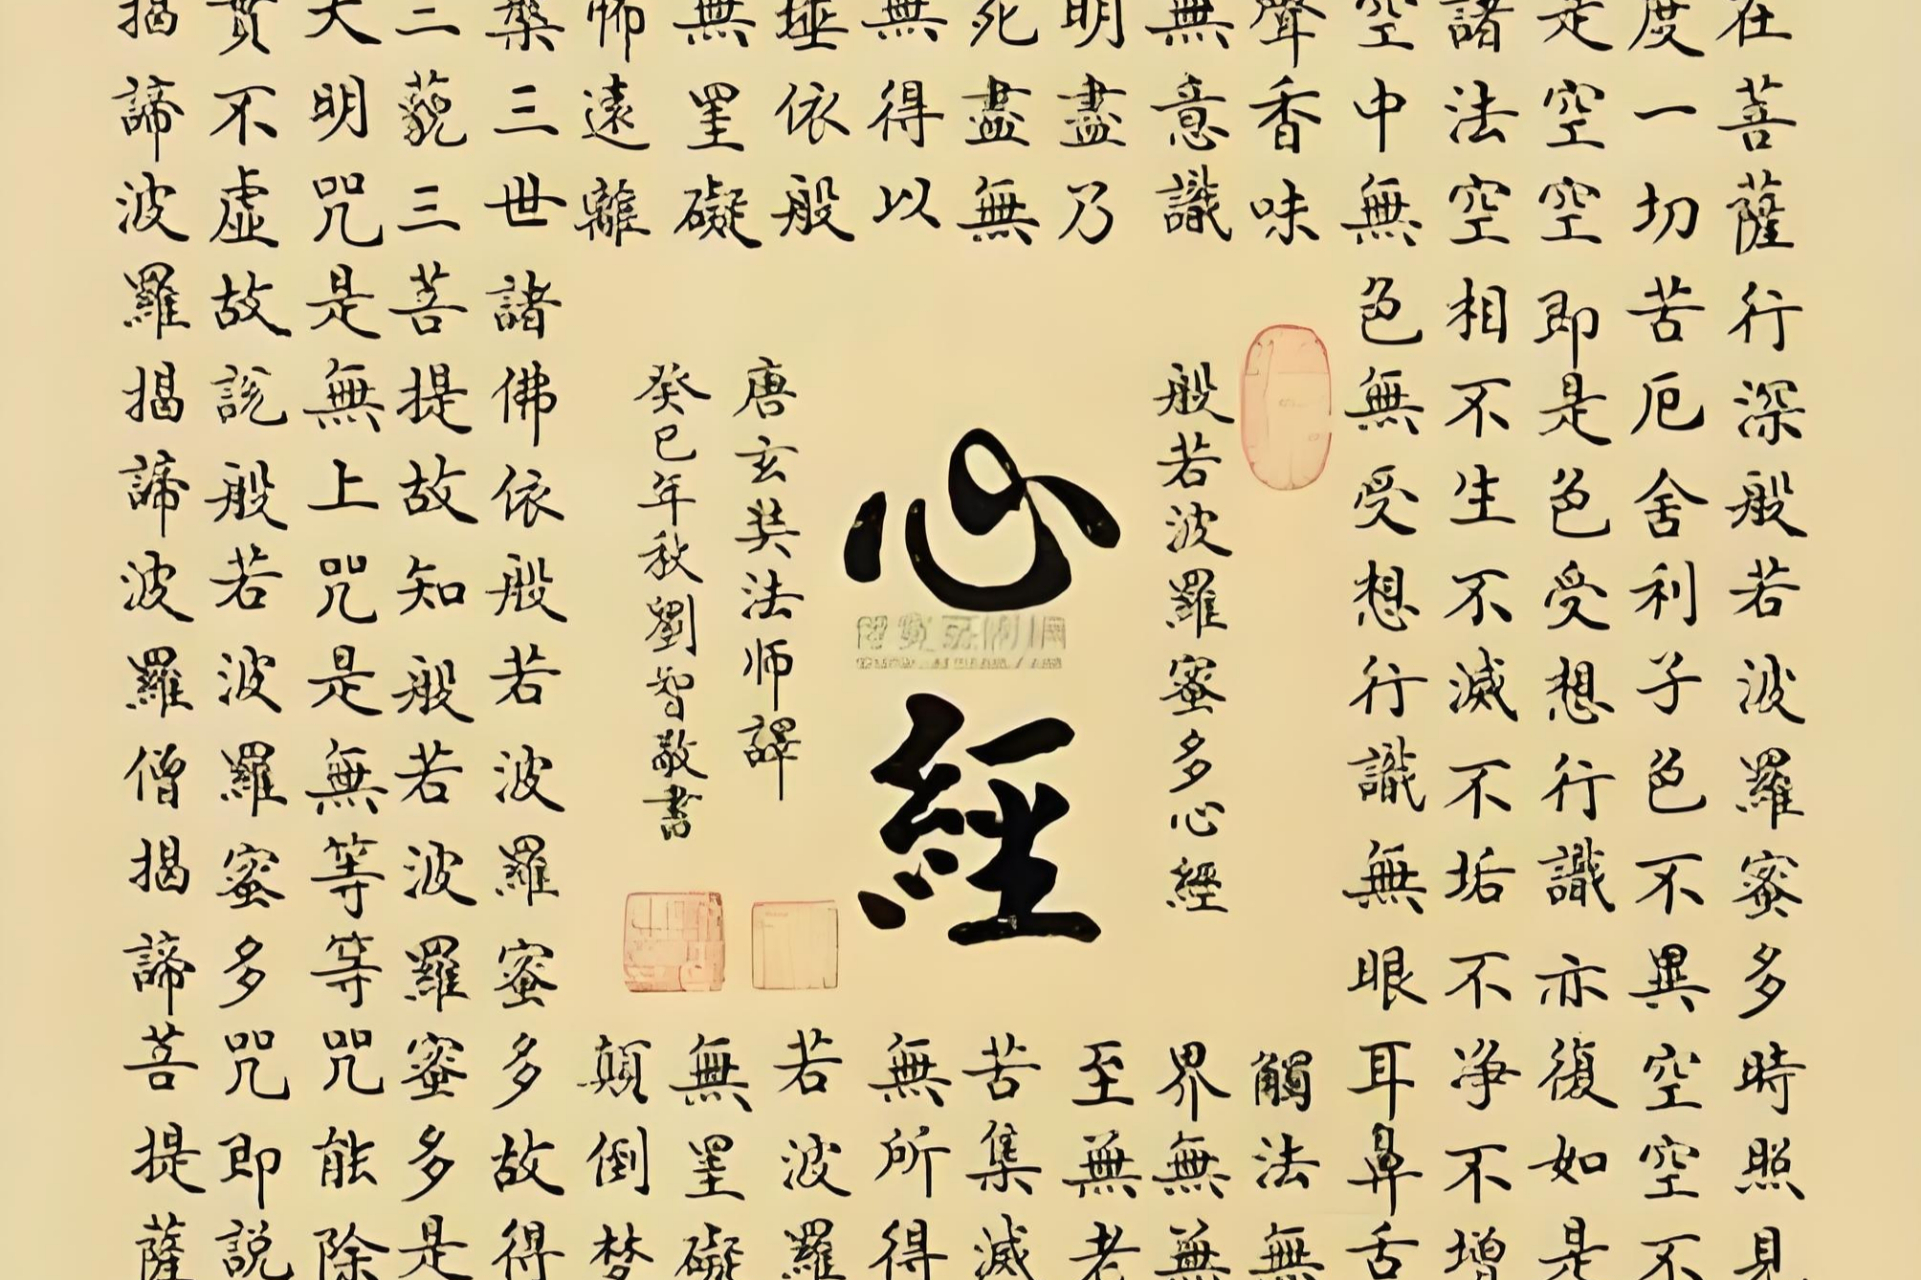 在菩薩行深般若波羅蜜多時照見
度一切苦厄舍利子色不異空空不
是空空即是色受想行識亦復如是
諸法空相不生不滅不垢不净不增
空中無色無受想行識無眼耳鼻舌
聲香味
觸法無
無意識
界無無
明盡乃
至無老
死盡無
苦集滅
無得以
無所得
埵依般
若波羅
無罣礙
無罣礙
怖遠離
顛倒梦
般若波羅蜜多心經
心經
唐玄奘法师譯
癸巳年秋劉智敬書
槃三世諸佛依般若波羅蜜多故得
三藐三菩提故知般若波羅蜜多是
大明咒是無上咒是無等等咒能除
實不虛故説般若波羅蜜多咒即説
揭諦波羅揭諦波羅僧揭諦菩提薩